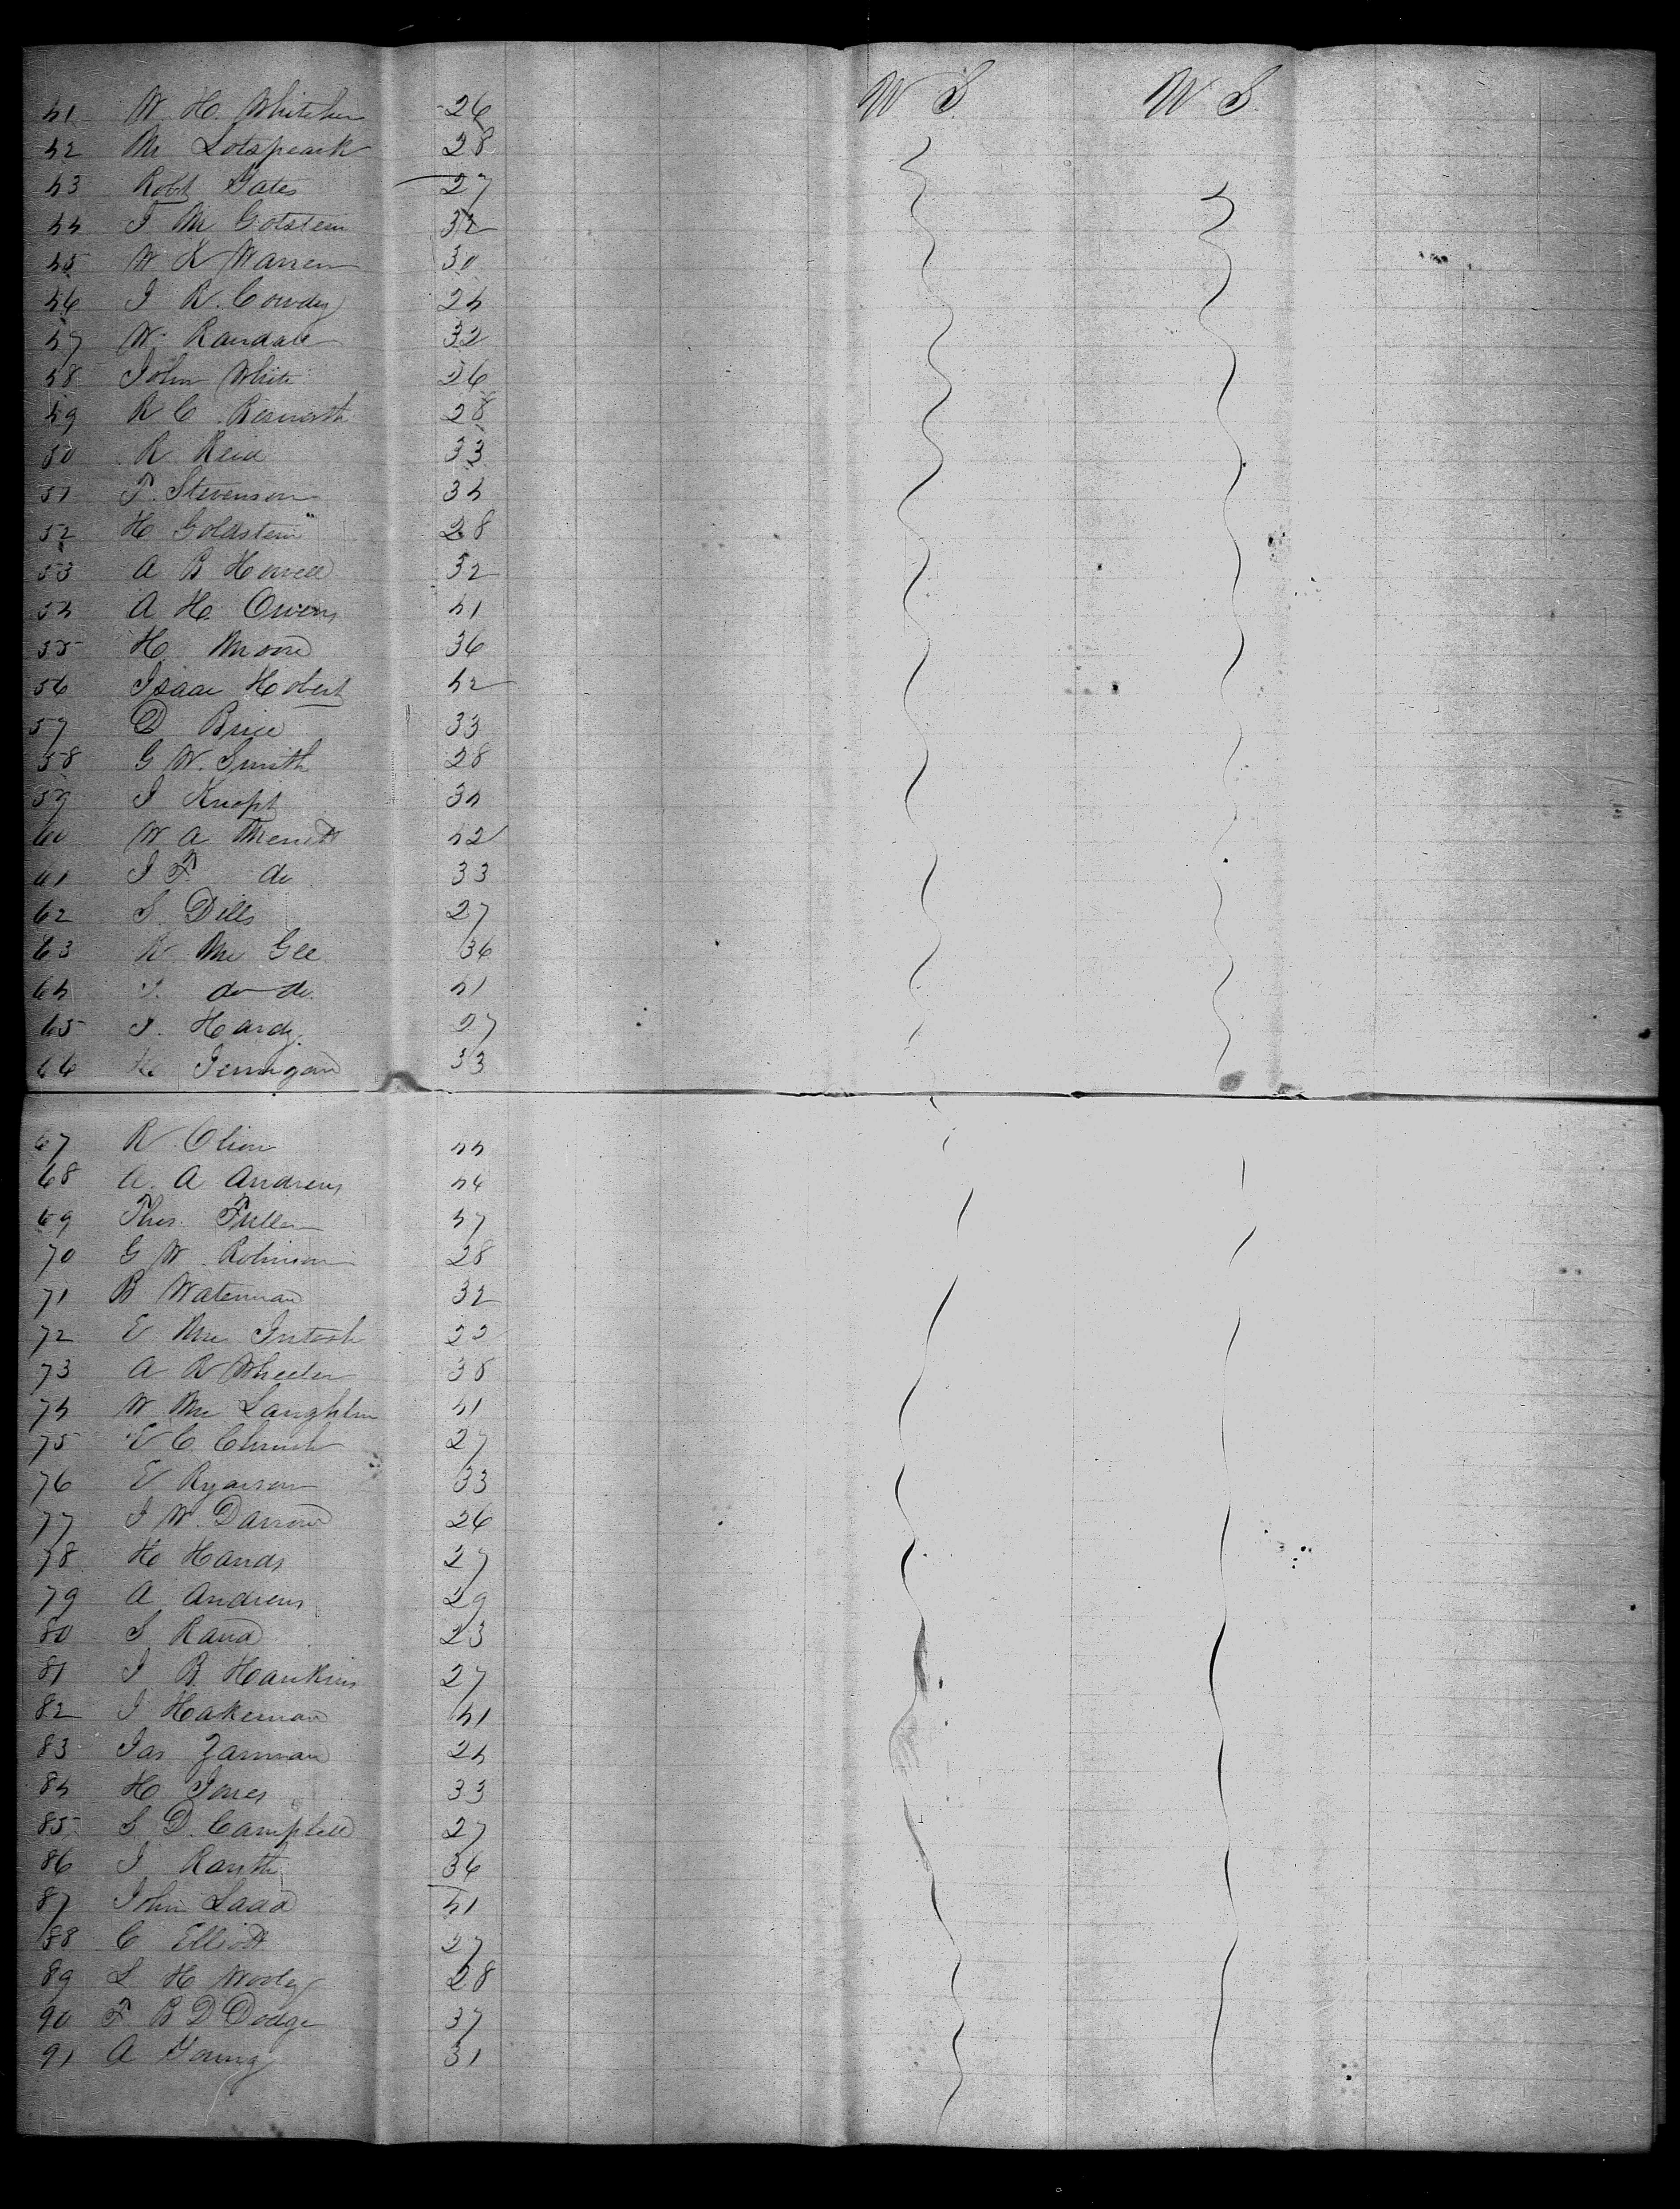 41 W. H. Whitcher 26 W S. W S.
42 M Lotspeack 28
43 Robt Yates 27
44 J M Gotstein 32
45 W K Warren 30
46 J R. Cowdy 24
47 W. Randall 32
48 John White 26
49 R C Bosworth 28
50 R Reid 33
51 T. Stevenson 34
52 H Goldstein 28
53 A B Howell 32
54 A H. Owens 41
55 H Moore 36
56 Isaac Hobert 42
57 D Brice 33
58 G W. Smith 28
59 J Knopt 34
60 W A Merritt 42
61 J F do 33
62 S. Dills 27
63 R Mc Gee 36
64 J. do do. 41
65 J. Hardy. 27
66 H Jernigan 33
67 R. Olion 44
68 A. A Andrews 46
69 Thos. Fuller 47
70 G W. Robinson 28
71 B Waterman 32
72 E Mc Intosh 22
73 A R Wheeler 38
74 W Mc Laughlin 41
75 E C Church 27
76 E Ryarson 33
77 J W. Darrow 26
78 H Hands 27
79 A Andrews 29
80 S Rand 23
81 J B. Hankins 27
82 J Hakeman 41
83 Jas Zarman 24
84 H Jones 33
85 S D. Campbell 27
86 J Rauth 36
87 John Ladd 41
88 C Elliott 27
89 L H Worley 28
90 F. B D Dodge 37
91 A Young 31